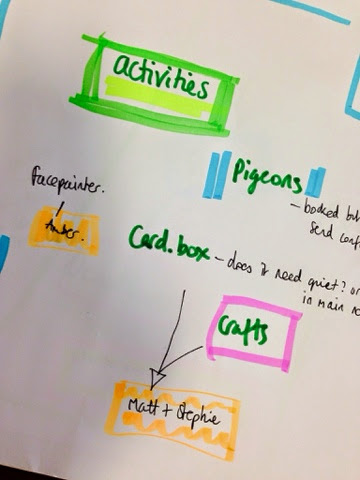 activities
Pigeons
- booked but
send conf
facepainter.
Amber.
Card.box - does it need quiet? or
in main ro
Crafts
Matt + Stephie